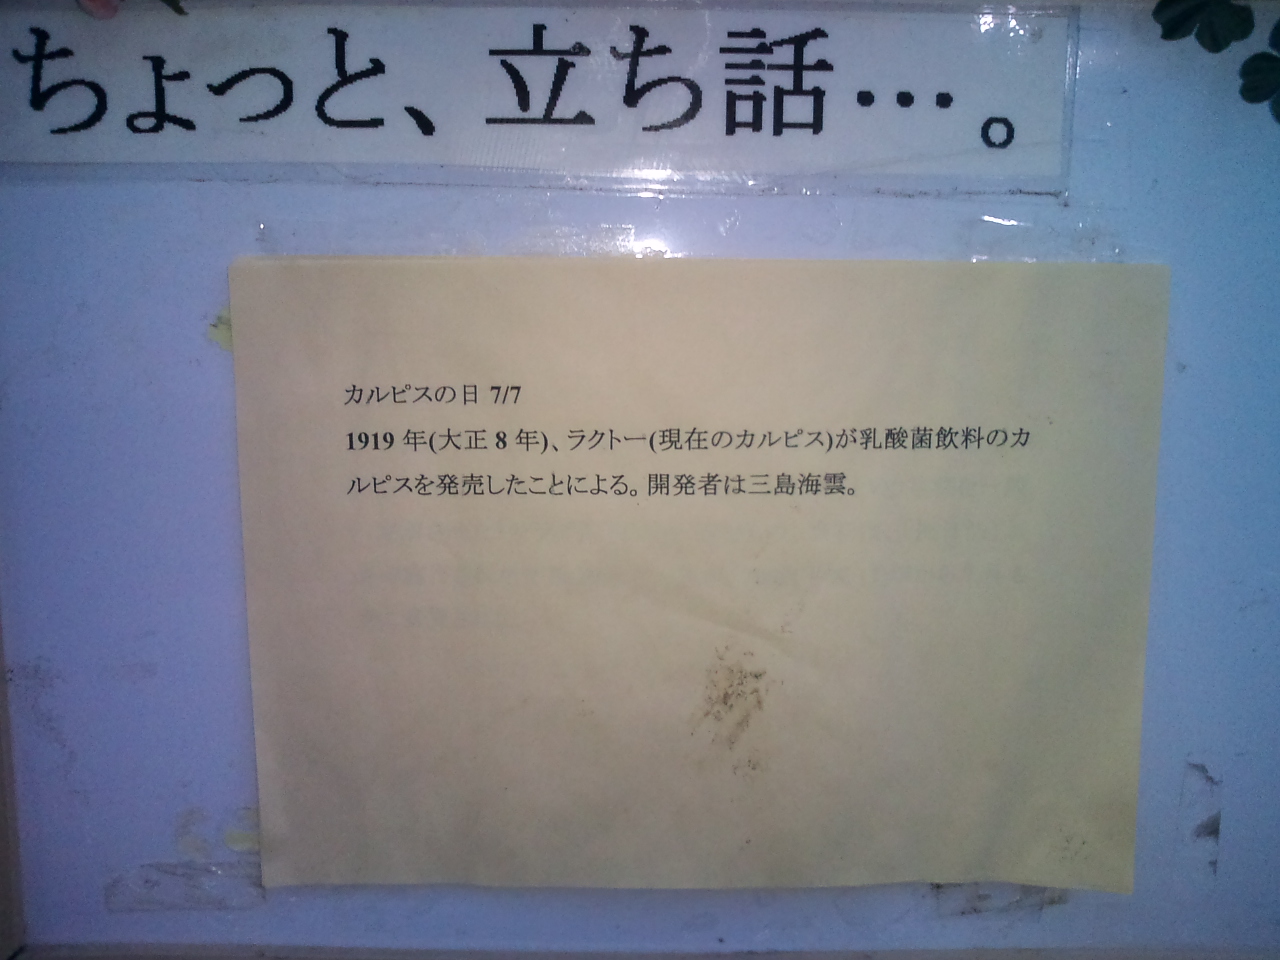 ちょっと、立ち話…。
カルピスの日 7/7
1919 年(大正 8 年)、ラクトー(現在のカルピス)が乳酸菌飲料のカ
ルピスを発売したことによる。開発者は三島海雲。